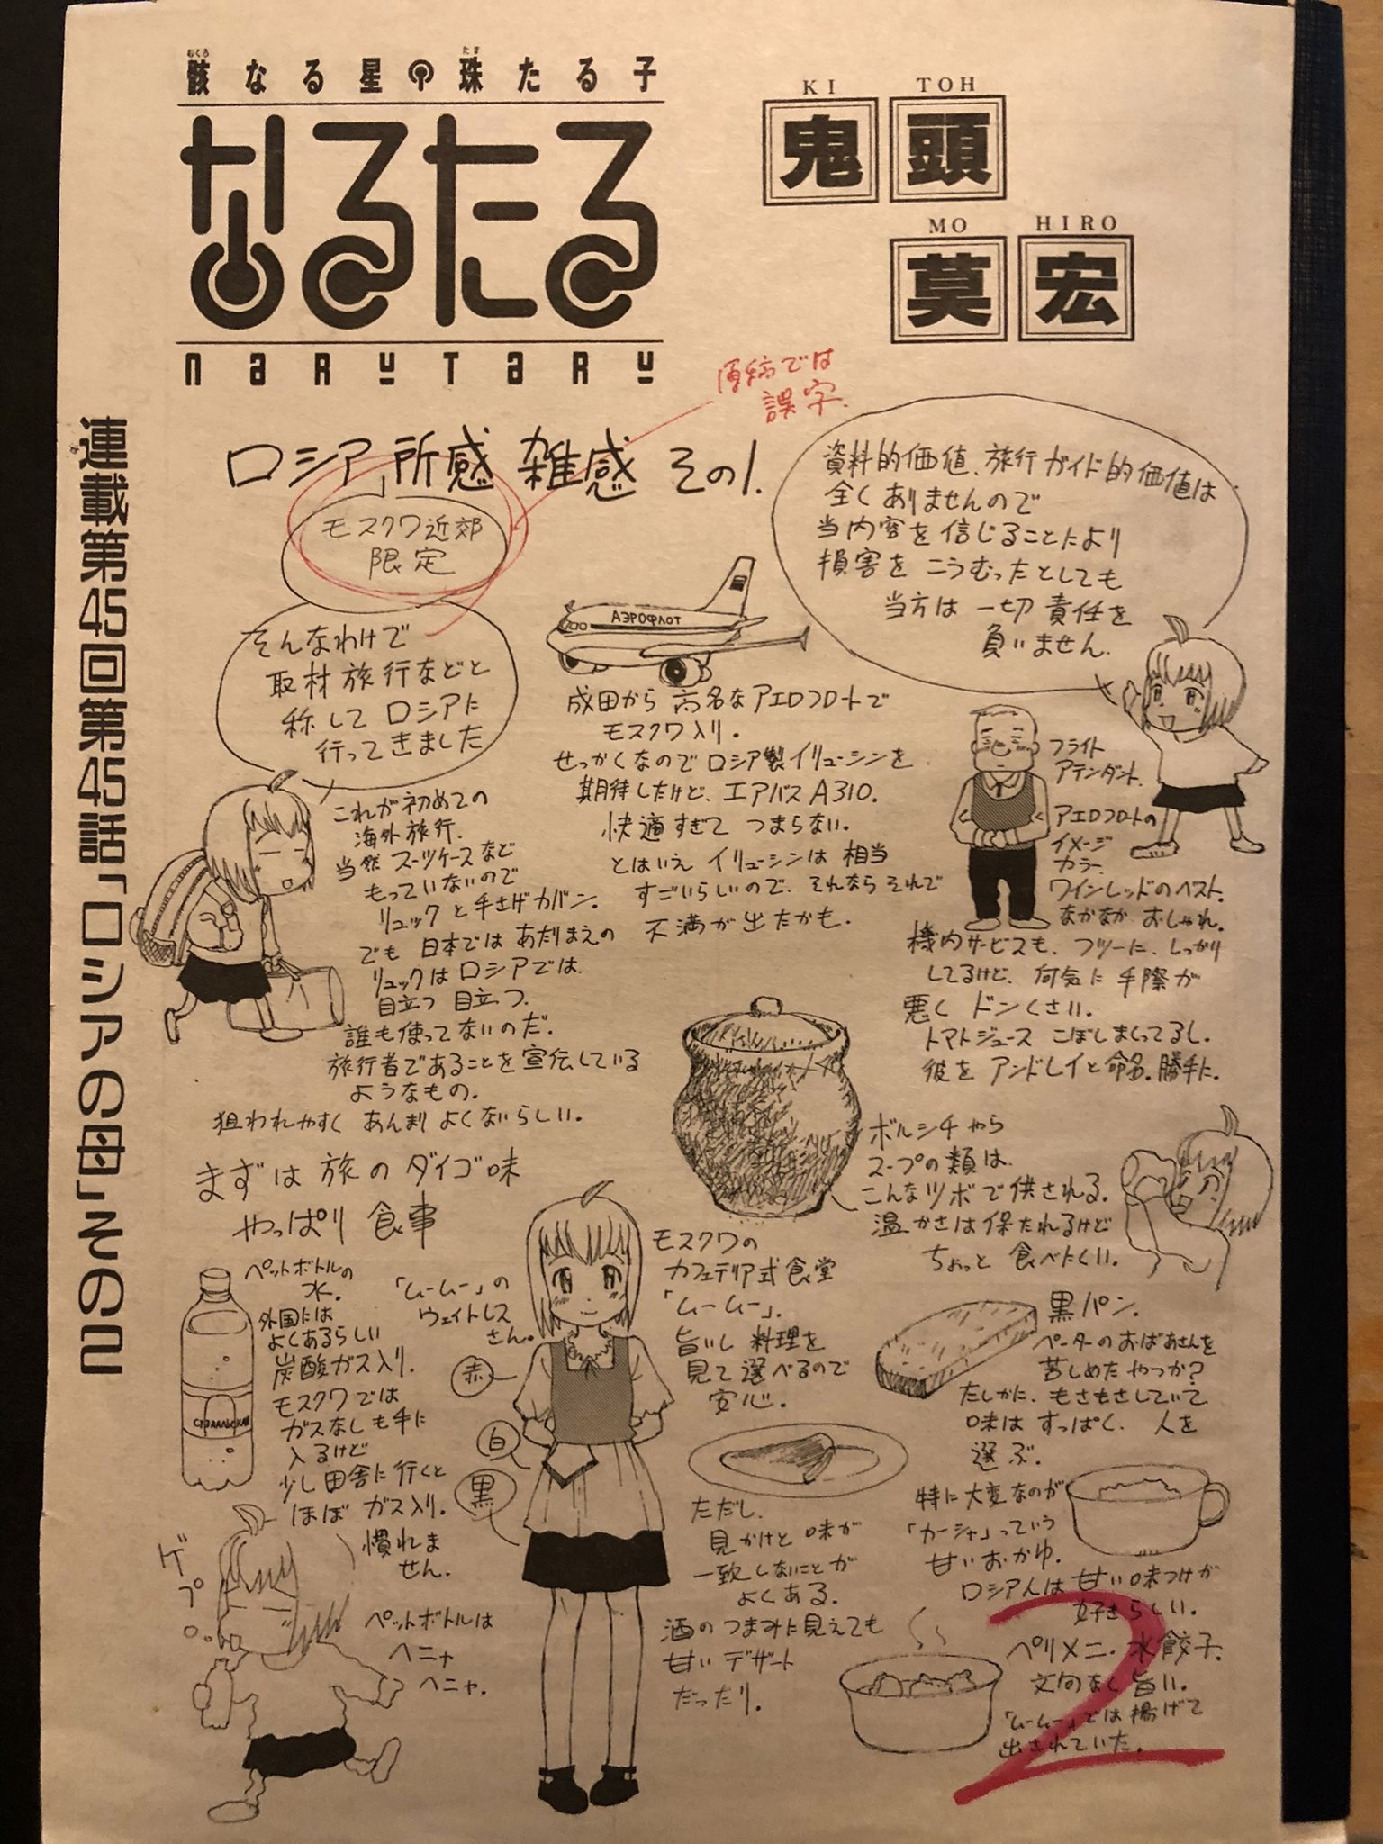 骸なる星の珠たる子
むくろ
たま
なるたる
NARUTARU
KI TOH
鬼頭
MO HIRO
莫宏
連載第45回第45話「ロシアの母」その2
原稿では
誤字.
ロシア所感 雑感 その1.
モスクワ近郊
限定
資料的価値、旅行ガイド的価値は
全くありませんので
当内容を信じることにより
損害をこうむったとしても
当方は一切責任を
負いません.
そんなわけで
取材旅行などと
称してロシアに
行ってきました
これが初めての
海外旅行.
当然スーツケースなど
もっていないので
リュックと手さげカバン.
でも日本ではあたりまえの
リュックはロシアでは
目立つ目立つ.
誰も使ってないのだ.
旅行者であることを宣伝している
ようなもの.
狙われやすくあんまりよくないらしい.
成田から高名なアエロフロートで
モスクワ入り.
せっかくなのでロシア製イリューシンを
期待したけど、エアバスA310.
快適すぎてつまらない.
とはいえイリューシンは相当
すごいらしいので、それならそれで
不満が出たかも.
フライト
アテンダント.
アエロフロートの
イメージ
カラー
ワインレッドのベスト.
なかなかおしゃれ.
機内サービスも、フツーに、しっかり
してるけど、何気に手際が
悪くドンくさい.
トマトジュースこぼしまくってるし.
彼をアンドレイと命名.勝手に.
まずは旅のダイゴ味
やっぱり食事
ボルシチやら
スープの類は
こんなツボで供される.
温かさは保たれるけど
ちょっと食べにくい.
ペットボトルの
水.
外国には
よくあるらしい
炭酸ガス入り.
モスクワでは
ガスなしも手に
入るけど
少し田舎に行くと
ほぼガス入り.
慣れま
せん.
ゲプ。
ペットボトルは
ヘニャ
ヘニャ.
「ムームー」の
ウェイトレス
さん。
赤
白
黒
モスクワの
カフェテリア式食堂
「ムームー」.
旨いし料理を
見て選べるので
安心.
ただし、
見かけと味が
一致しないことが
よくある.
酒のつまみに見えても
甘いデザート
だったり.
黒パン.
ペーターのおばあさんを
苦しめたやつか?
たしかに、もさもさしていて
味はすっぱく、人を
選ぶ.
特に大変なのが
「カーシャ」っていう
甘いおかゆ.
ロシア人は甘い味つけが
好きらしい.
ペリメニ・水餃子.
文句なく旨い.
「ムームー」では揚げて
出されていた.
2